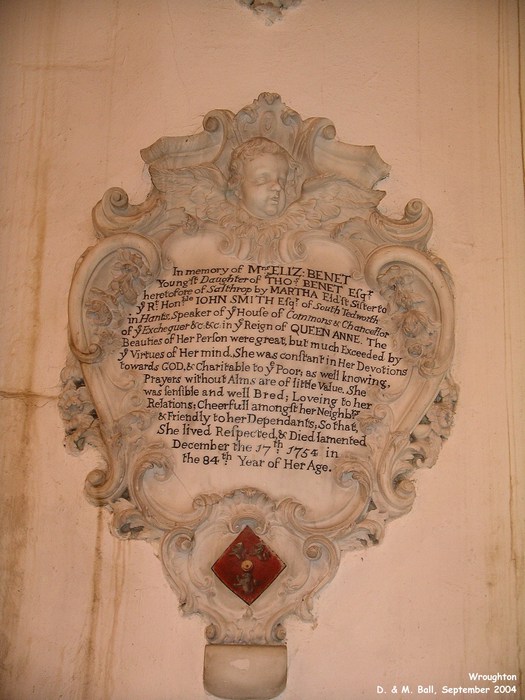 In memory of Mrs ELIZ: BENET
Youngſt Daughter of THOs BENET Eſqr
heretofore of Salthrop by MARTHA Eldſt Siſter to
yͤ Rt Honble IOHN SMITH Eſqr of South Tedworth
in Hants, Speaker of yͤ Houſe of Commons & Chancellor
of yͤ Exchequer &c. &c. in yͤ Reign of QUEEN ANNE. The
Beauties of Her Perſon were great, but much Exceeded by
yͤ Virtues of Her mind. She was conſtant in Her Devotions
towards GOD, & Charitable to yͤ Poor; as well knowing,
Prayers without Alms are of little Value. She
was ſenſible and well Bred; Loveing to her
Relations; Cheerfull amongſt her Neighbrs
& Friendly to her Dependants; So that,
She lived Reſpected, & Died lamented
December the 17th 1754 in
the 84th Year of Her Age.
Wroughton
D. & M. Ball, September 2004